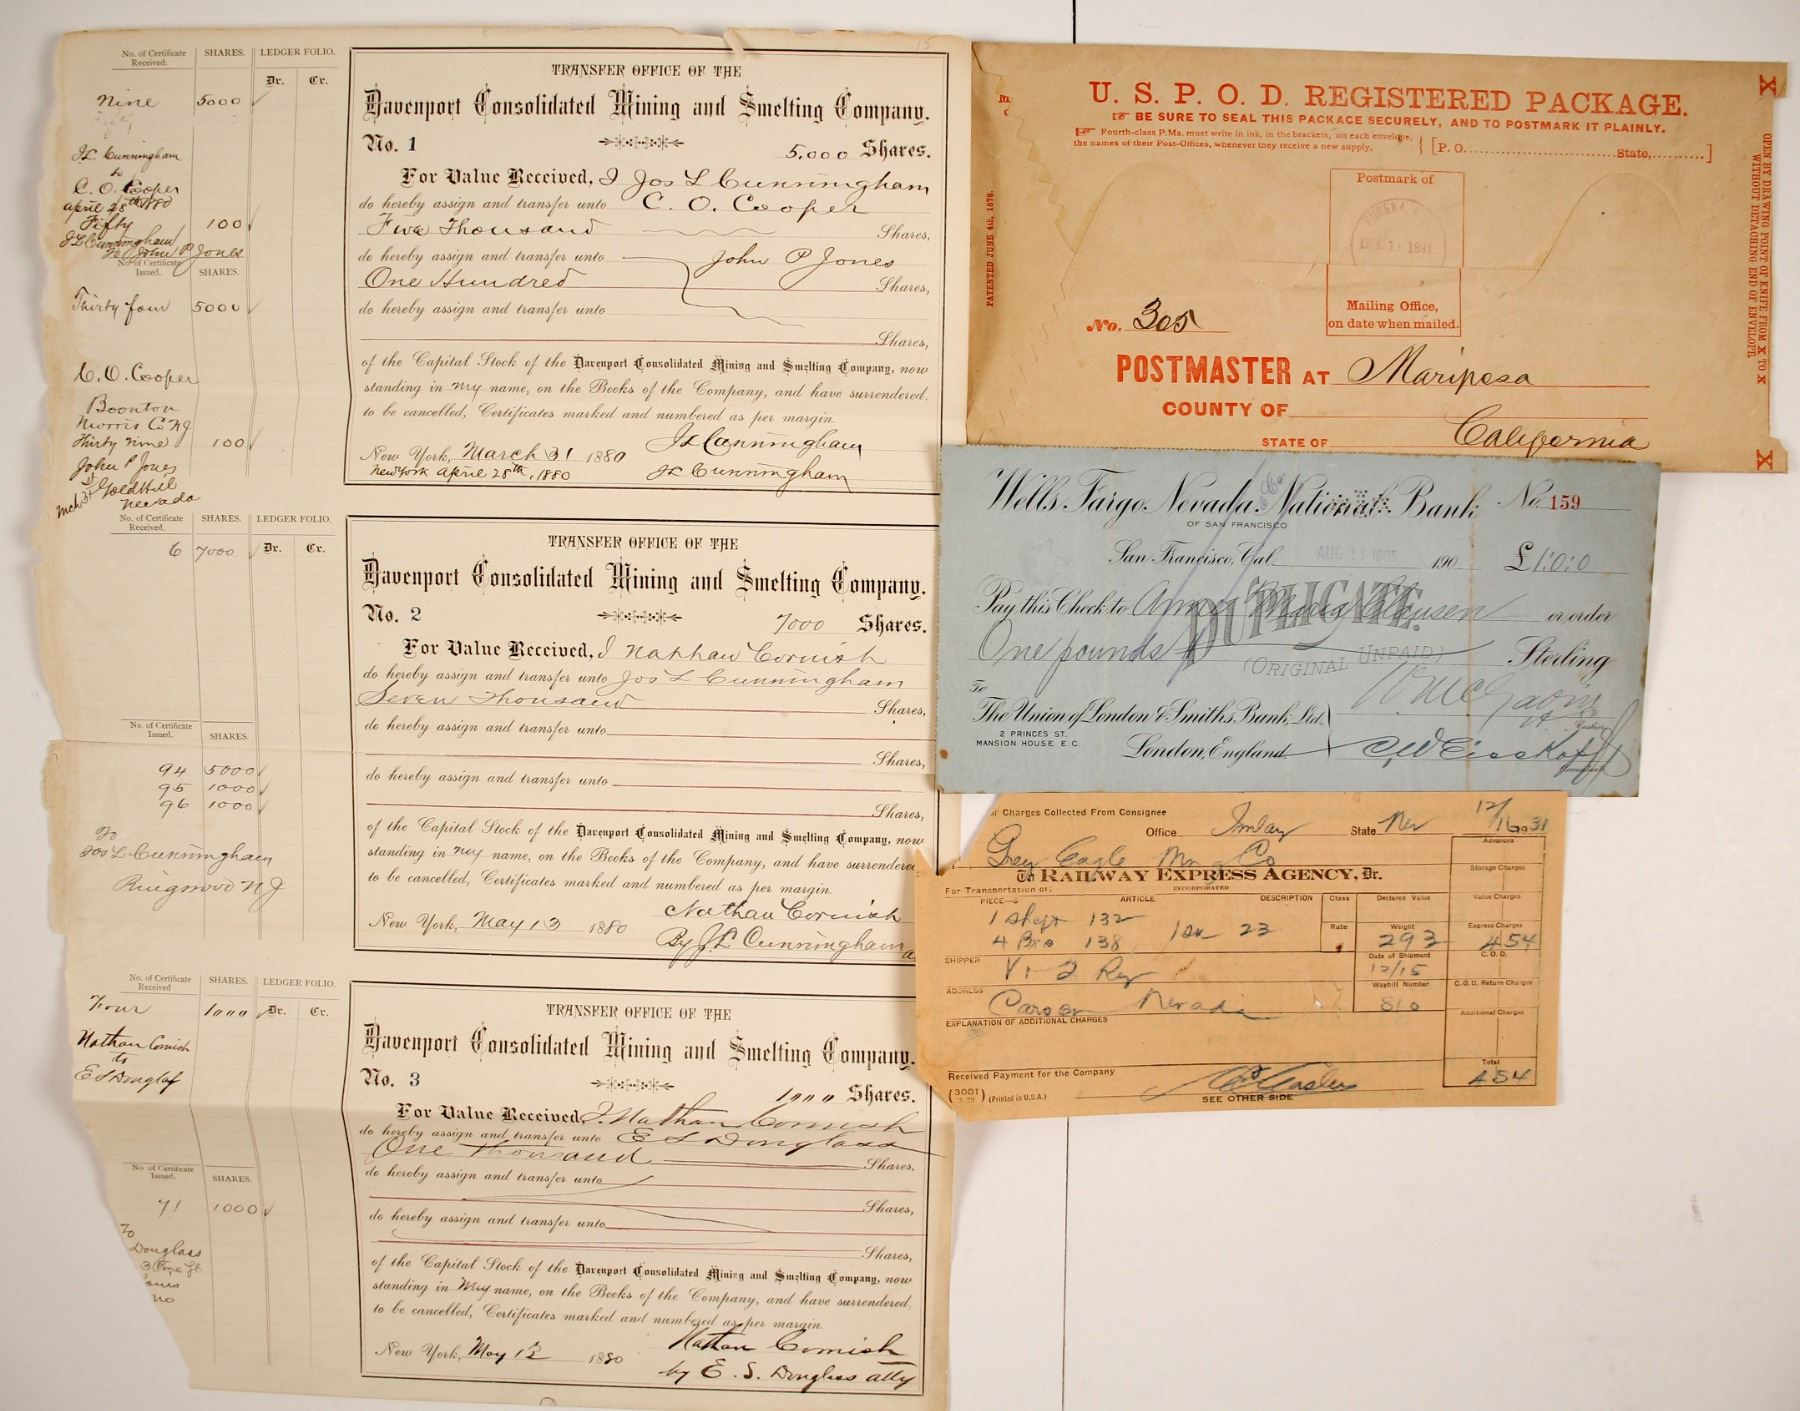 No. of Certificate Received. SHARES. LEDGER FOLIO.
Dr. Cr.
Nine 5000
Fifty
JL Cunningham
to
C. O. Cooper
April 28th 1880
Fifty 100
JL Cunningham
To John P Jones
No. of Certificate Issued. SHARES.
Thirty four 5000
C. O. Cooper
Boonton
Morris Co NJ
Thirty nine 100
John P Jones
Mch 31st Gold Hill
Nevada
15
TRANSFER OFFICE OF THE
Davenport Consolidated Mining and Smelting Company.
No. 1 5,000 Shares.
For Value Received, I Jos L Cunningham
do hereby assign and transfer unto C. O. Cooper
Five Thousand Shares,
do hereby assign and transfer unto John P Jones
One Hundred Shares,
do hereby assign and transfer unto
Shares,
of the Capital Stock of the Davenport Consolidated Mining and Smelting Company, now
standing in my name, on the Books of the Company, and have surrendered,
to be cancelled, Certificates marked and numbered as per margin.
New York, March 31 1880 JL Cunningham
New York April 28th, 1880 JL Cunningham
No. of Certificate Received. SHARES. LEDGER FOLIO.
6 7000 Dr. Cr.
No. of Certificate Issued. SHARES.
94 5000
95 1000
96 1000
To
Jos L Cunningham
Ringwood N J
TRANSFER OFFICE OF THE
Davenport Consolidated Mining and Smelting Company.
No. 2 7000 Shares.
For Value Received, I Nathan Cornish
do hereby assign and transfer unto Jos L Cunningham
Seven Thousand Shares,
do hereby assign and transfer unto
Shares,
do hereby assign and transfer unto
Shares,
of the Capital Stock of the Davenport Consolidated Mining and Smelting Company, now
standing in my name, on the Books of the Company, and have surrendere
to be cancelled, Certificates marked and numbered as per margin.
New York, May 13 1880 Nathan Cornish
By J. L Cunningham a
No. of Certificate Received SHARES. LEDGER FOLIO.
Four 1000 Dr. Cr.
Nathan Cornish
to
E S Douglass
No of Certificate Issued. SHARES.
71 1000
To
Douglass
TRANSFER OFFICE OF THE
Davenport Consolidated Mining and Smelting Company.
No. 3 1000 Shares.
For Value Received, I. Nathan Cornish
do hereby assign and transfer unto E S Douglass
One Thousand Shares.
do hereby assign and transfer unto
Shares,
do hereby assign and transfer unto
Shares,
of the Capital Stock of the Davenport Consolidated Mining and Smelting Company, now
standing in my name, on the Books of the Company, and have surrendered,
to be cancelled, Certificates marked and numbered as per margin.
New York, May 12 1880 Nathan Cornish
by E. S. Douglass atty
U. S. P. O. D. REGISTERED PACKAGE.
☞ BE SURE TO SEAL THIS PACKAGE SECURELY, AND TO POSTMARK IT PLAINLY.
☞ Fourth-class P.Ms. must write in ink, in the brackets, on each envelope,
the names of their Post-Offices, whenever they receive a new supply. [P. O. State, ]
PATENTED JUNE 4th, 1878.
X
OPEN BY DRAWING POINT OF KNIFE FROM X TO X
WITHOUT DETACHING END OF ENVELOPE
X
Postmark of
EUREKA
DEC 1891
Mailing Office,
on date when mailed.
No. 305
POSTMASTER AT Mariposa
COUNTY OF
STATE OF California
Wells Fargo Nevada National Bank No. 159
OF SAN FRANCISCO
San Francisco, Cal. AUG 1905 190 £1:0:0
Pay this Check to Anna Maria Clausen or order
DUPLICATE.
One pounds Sterling
(ORIGINAL UNPAID)
To
The Union of London & Smiths Bank, Ltd.
2 PRINCES ST.
MANSION HOUSE E.C.
London, England
Charges Collected From Consignee
Office Imlay State Nev 12/16 1931
Grey Eagle Mng Co
To RAILWAY EXPRESS AGENCY, Dr.
INCORPORATED
For Transportation of:
PIECES ARTICLE DESCRIPTION Class Declared Value Value Charges
Advances
Storage Charges
1 132
4 Bxs 138 23
Rate Weight Express Charges
293 4 54
SHIPPER
Date of Shipment C. O. D.
12/15
ADDRESS Carson Nevada
Waybill Number C. O. D. Return Charges
810
EXPLANATION OF ADDITIONAL CHARGES
Additional Charges
Received Payment for the Company
Total
4 54
(3001) (Printed in U.S.A.)
3-29
SEE OTHER SIDE